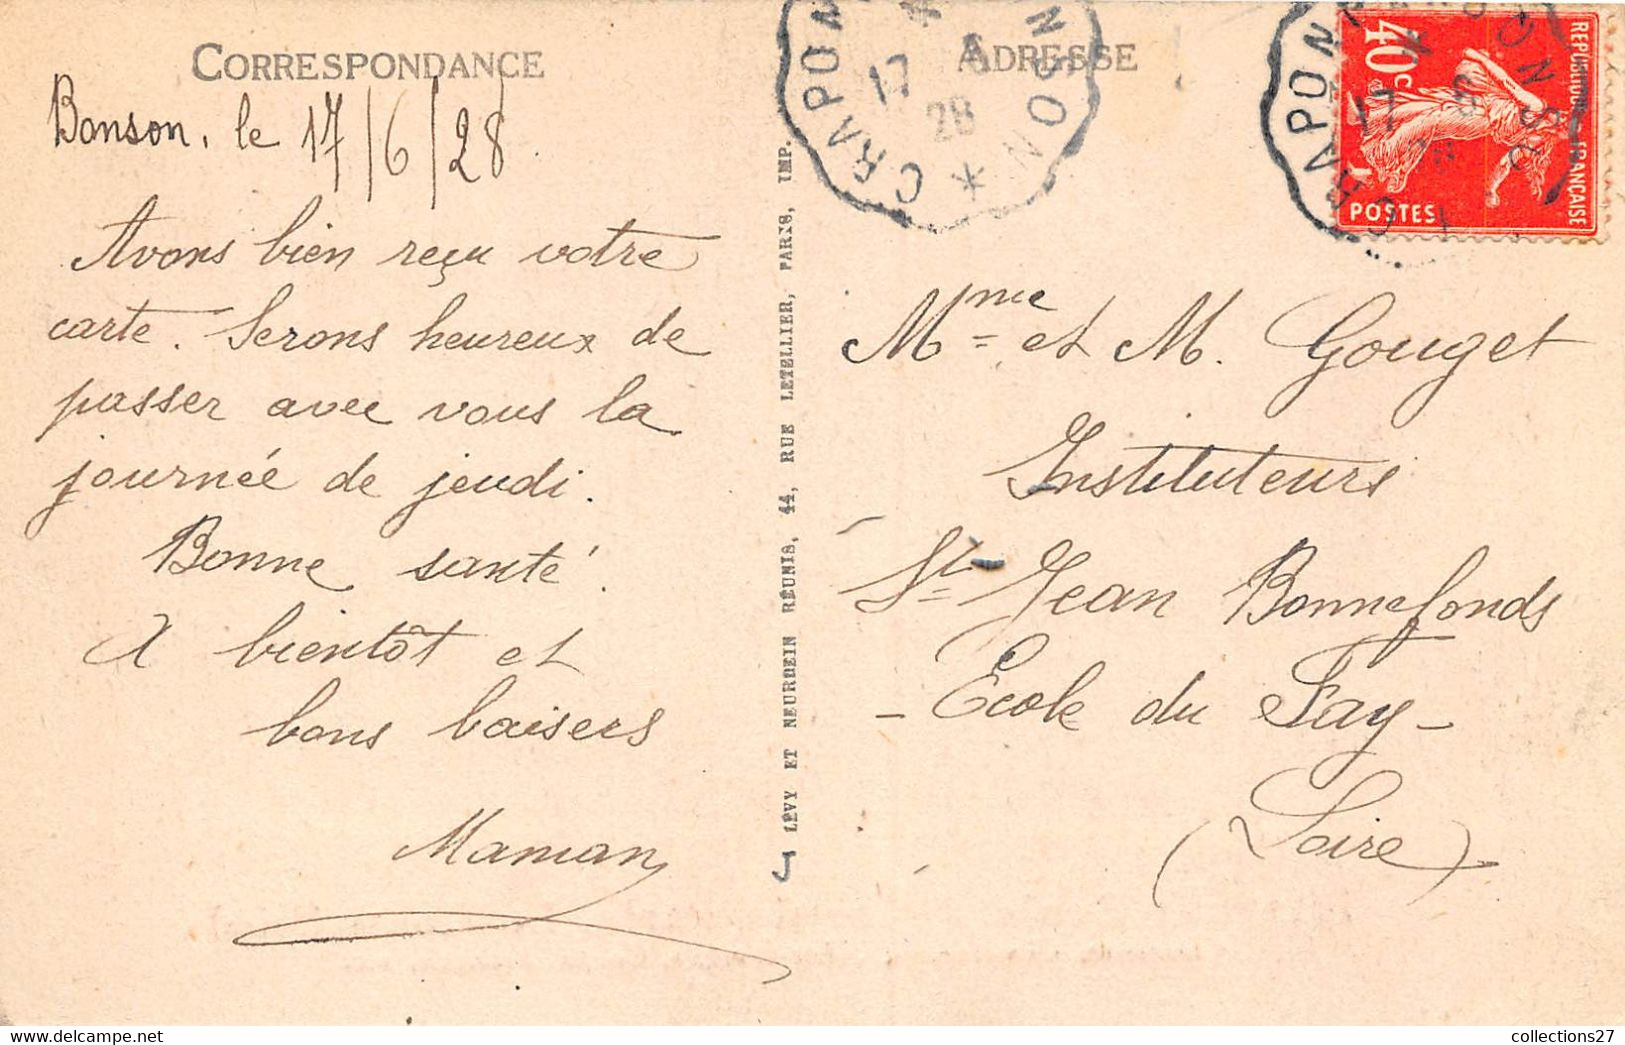 CORRESPONDANCE
Bonson, le 17/6/28.
Avons bien reçu votre
carte. Serons heureux de
passer avec vous la
journée de jeudi.
Bonne santé.
A bientôt et
bons baisers
Maman
LÉVY ET NEURDEIN RÉUNIS, 44, RUE LETELLIER, PARIS, IMP.
ADRESSE
CRAPON
17
6
28
REPUBLIQUE FRANÇAISE
40c
POSTES
Mme et M. Gouget
Instituteurs
St-Jean Bonnefonds
- École du Fay -
(Loire)
collections27